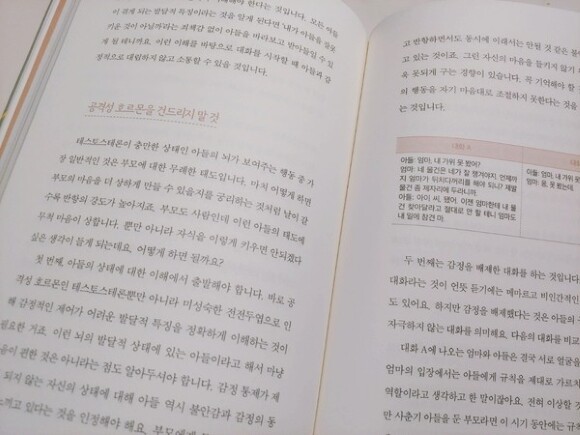 이 겪게 되는 발달적 특징이라는 것을 알게 된다면 '내가 아들을 잘못
키운 것이 아닐까'라는 죄책감 없이 아들을 바라보고 받아들일 수 있
게 될 테니까요. 이런 이해를 바탕으로 대화를 시작할 때 아들과 감
정적으로 대립하지 않고 소통할 수 있을 것입니다.
공격성 호르몬을 건드리지 말 것
테스토스테론이 충만한 상태인 아들의 뇌가 보여주는 행동 중 가
장 일반적인 것은 부모에 대한 무례한 태도입니다. 마치 어떻게 하면
부모의 마음을 더 상하게 만들 수 있을지를 궁리하는 것처럼 날이 갈
수록 반항의 강도가 높아지죠. 부모도 사람인데 이런 아들의 태도에
무척 마음이 상합니다. 뿐만 아니라 자식을 이렇게 키우면 안되겠다
싶은 생각이 들게 되는데요. 어떻게 하면 될까요?
첫 번째, 아들의 상태에 대한 이해에서 출발해야 합니다. 바로 공
격성 호르몬인 테스토스테론뿐만 아니라 미성숙한 전전두엽으로 인
해 감정적인 제어가 어려운 발달적 특징을 정확하게 이해하는 것이
필요한 거죠. 이런 뇌의 발달적 상태에 있는 아들이라고 해서 마냥
음이 편한 것은 아니라는 점도 알아두셔야 합니다. 감정 통제가 제
되지 않는 자신의 상태에 대해 아들 역시 불안감과 감정의 동
느끼고 있다는 것을 인정해야 해요. 부모에게
고 반항하면서도 동시에 이래서는 안될 것 같은
고 있는 것이죠. 그런 자신의 마음을 들키지 않기
욱 못되게 구는 경향이 있습니다. 꼭 기억해야 할
의 행동을 자기 마음대로 조절하지 못한다는 것을
는 것입니다.
대화 A
아들: 엄마, 내 가위 못 봤어?
엄마: 네 물건은 네가 잘 챙겨야지, 언제까
지 엄마가 뒤치다꺼리를 해야 되니? 제발
물건 좀 제자리에 두라니까.
아들: 아이 씨, 됐어. 이젠 엄마한테 내 물
건 찾아달라고 절대로 안 할 테니 엄마도
내 일에 참견 마.
아들: 엄마, 내 가위 못
엄마: 응, 못 봤는데.
두 번째는 감정을 배제한 대화를 하는 것입니다
대화라는 것이 언뜻 듣기에는 메마르고 비인간적인
도 있어요. 하지만 감정을 배제했다는 것은 아들의
자극하지 않는 대화를 의미해요. 다음의 대화를 비교
대화 A에 나오는 엄마와 아들은 결국 서로 얼굴을
엄마의 입장에서는 아들에게 규칙을 제대로 가르치
역할이라고 생각하고 한 말이잖아요. 전혀 이상할 것
만 사춘기 아들을 둔 부모라면 이 시기 동안에는 규칙